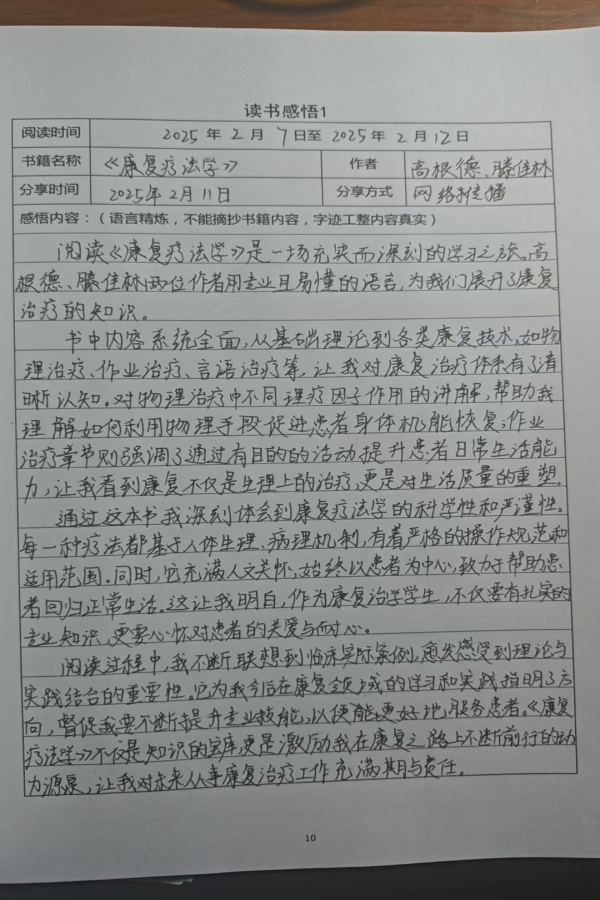 读书感悟1
阅读时间 2025年2月7日至2025年2月12日
书籍名称 《康复疗法学》 作者 高根德、滕佳林
分享时间 2025年2月11日 分享方式 网络传播
感悟内容：（语言精炼，不能摘抄书籍内容，字迹工整内容真实）
阅读《康复疗法学》是一场充实而深刻的学习之旅。高
根德、滕佳林两位作者用专业且易懂的语言，为我们展开了康复
治疗的知识。
书中内容系统全面，从基础理论到各类康复技术，如物
理治疗、作业治疗、言语治疗等，让我对康复治疗体系有了清
晰认知。对物理治疗中不同理疗因子作用的讲解，帮助我
理解如何利用物理手段促进患者身体机能恢复；作业
治疗章节则强调了通过有目的的活动提升患者日常生活能
力，让我看到康复不仅是生理上的治疗，更是对生活质量的重塑。
通过这本书我深刻体会到康复疗法学的科学性和严谨性。
每一种疗法都基于人体生理、病理机制，有着严格的操作规范和
适用范围。同时，它充满人文关怀，始终以患者为中心，致力于帮助患
者回归正常生活。这让我明白，作为康复治学学生，不仅要有扎实的
专业知识，更要心怀对患者的关爱与耐心。
阅读过程中，我不断联想到临床实际案例，愈发感受到理论与
实践结合的重要性。它为我今后在康复领域的学习和实践指明了方
向，督促我要不断提升专业技能，以便能更好地服务患者。《康复
疗法学》不仅是知识的宝库，更是激励我在康复之路上不断前行的动
力源泉，让我对未来从事康复治疗工作充满期与责任。
10